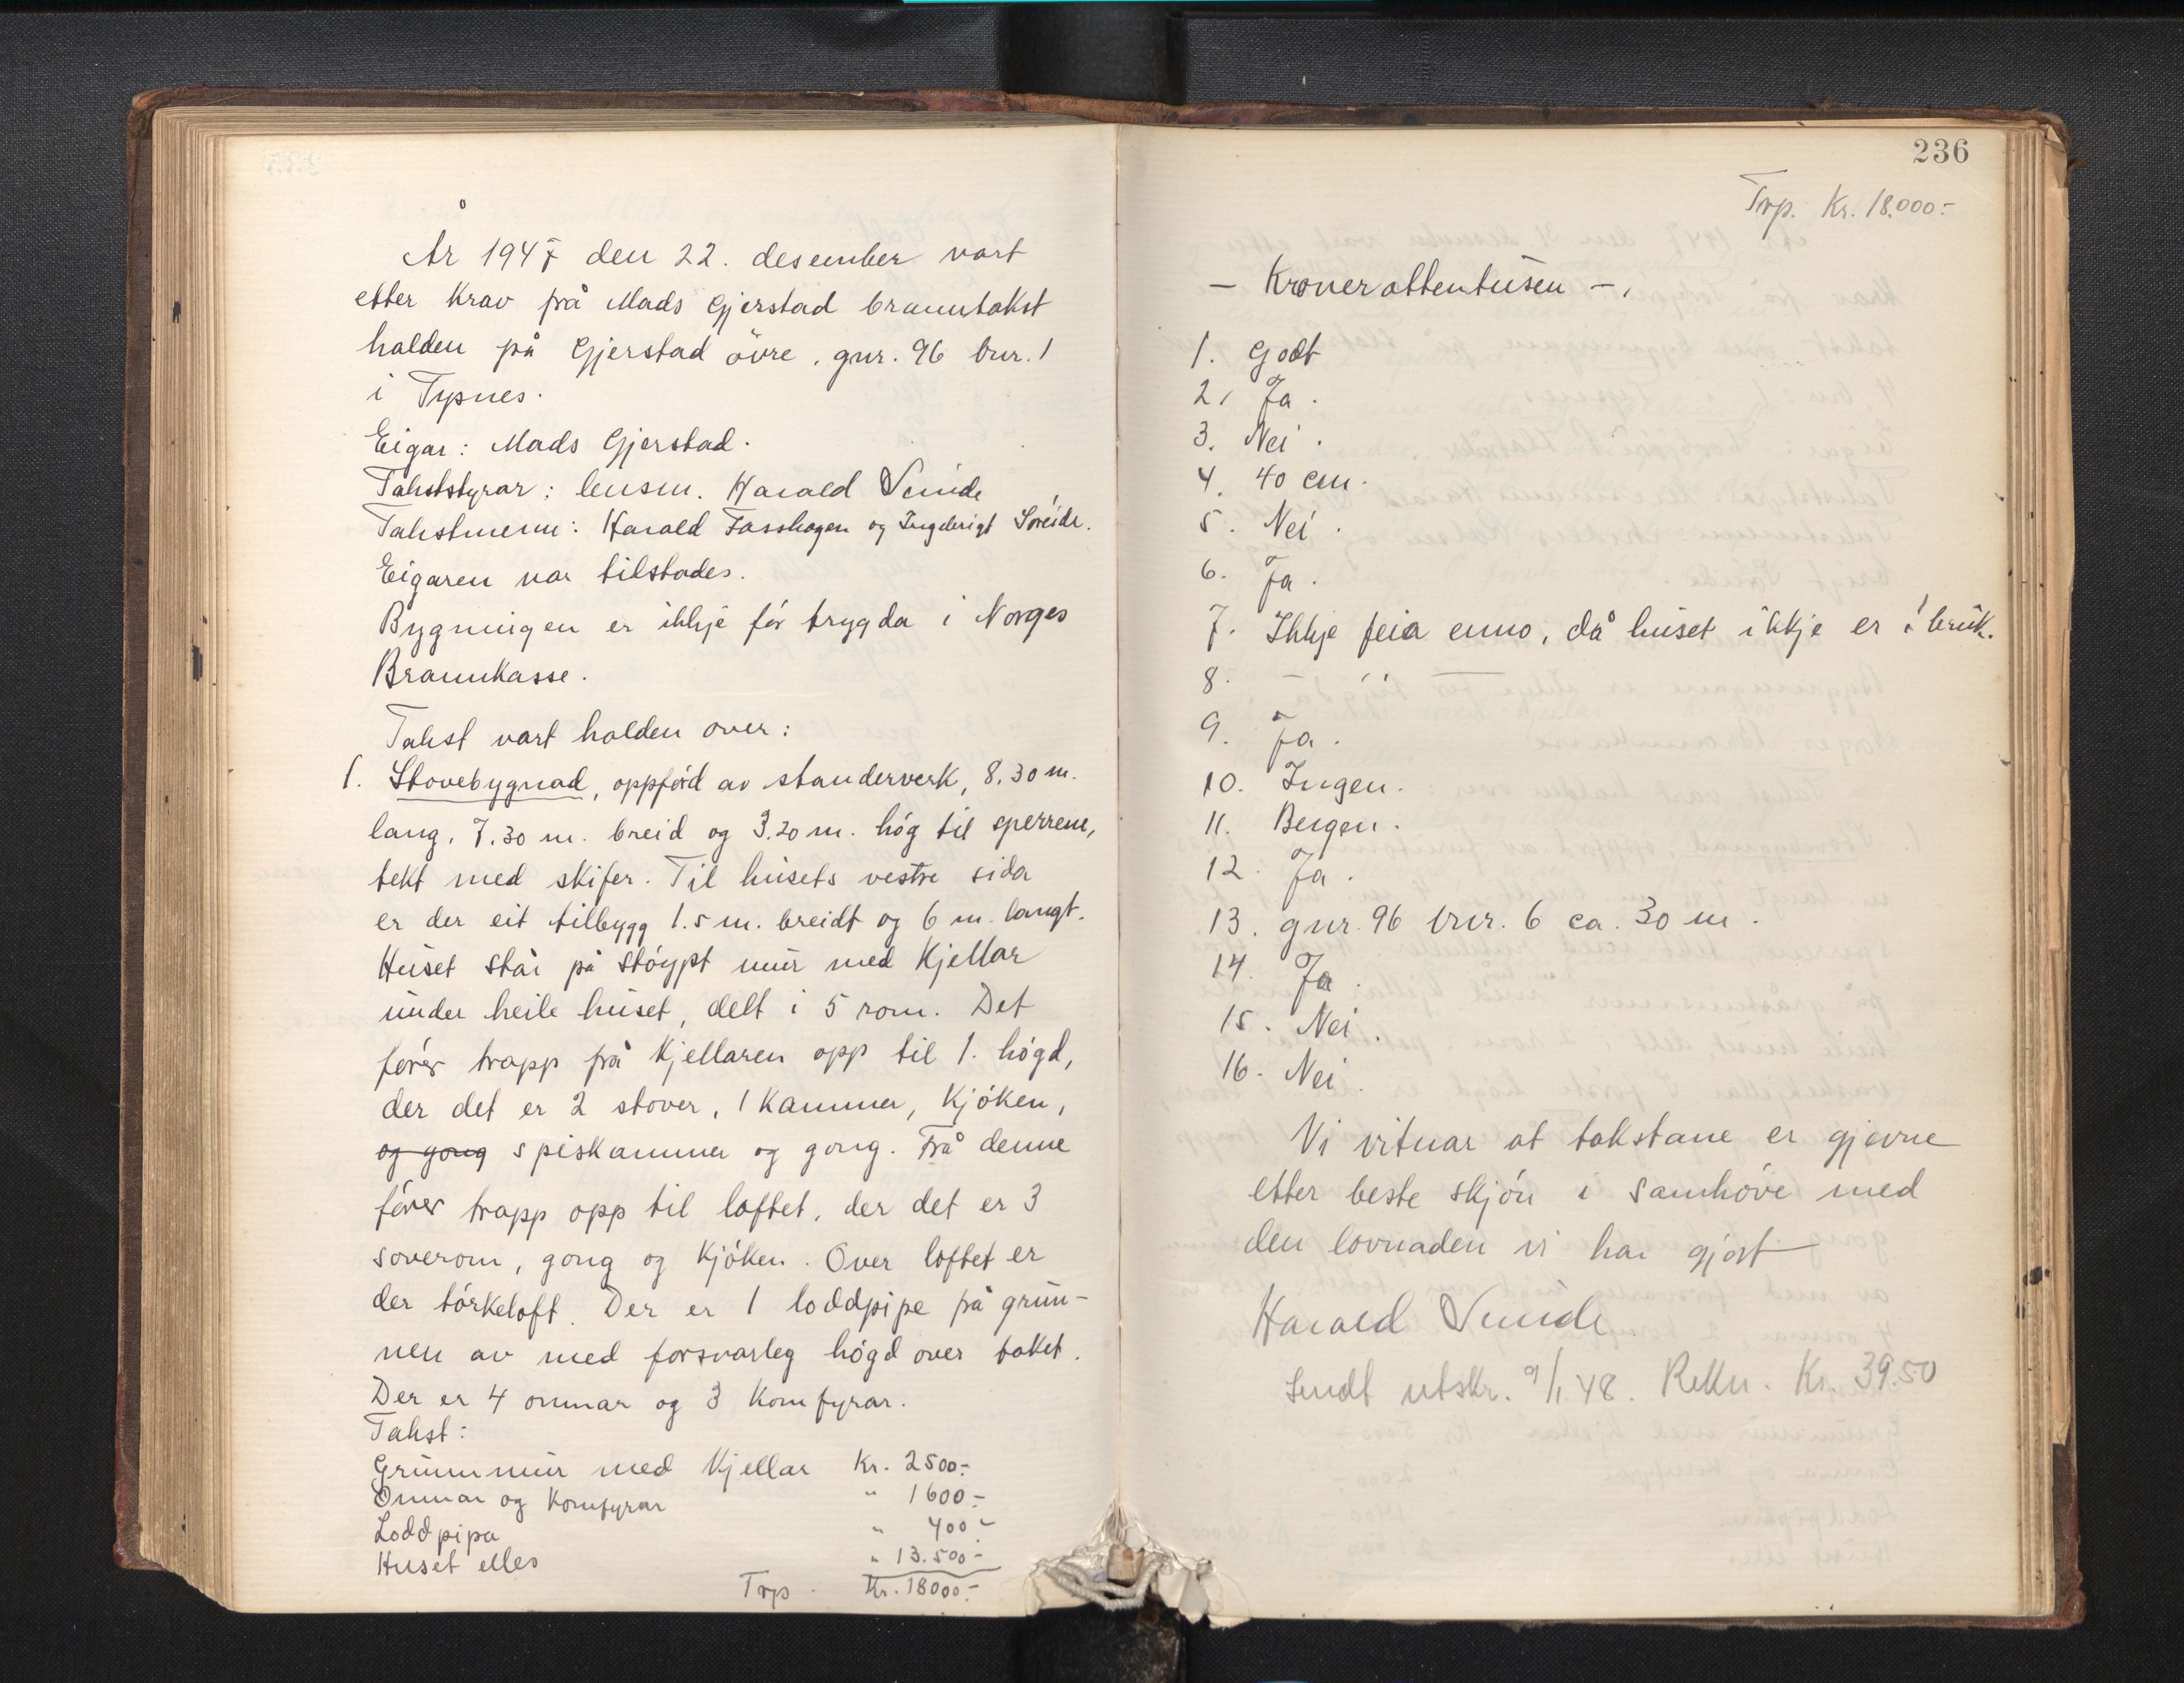 År 1947 den 22. desember vart
etter krav frå Mads Gjerstad branntakst
halden på Gjerstad övre, gnr. 96 bnr. 1
i Tysnes.
Eigar: Mads Gjerstad.
Takststyrar: lensm. Harald Sunde
Takstmenn: Harald Fasshagen og Ingebrigt Soreide.
Eigaren var tilstades.
Bygningen er ikkje fór trygda i Norges
Brannkasse.
Takst vart halden over:
1. Stovebygnad, oppförd av standerverk, 8.30 m.
lang, 7.30 m. breid og 3.20 m. hóg til sperrene,
tekt med skifer. Til husets vestre sida
er der eit tilbygg 1.5 m. breidt og 6 m. langt.
Huset står på stóypt mur med kjellar
under heile huset, delt i 5 rom. Det
fórer trapp frå kjellaren opp til 1. hógd,
der det er 2 stover, 1 kammer, kjóken,
og gong spiskammer og gong. Frå denne
fórer trapp opp til loftet, der det er 3
soverom, gong og kjóken. Over loftet er
der tórkeloft. Der er 1 loddpipe på grun-
nen av med forsvarleg hógd over taket.
Der er 4 omnar og 3 komfyrar.
Takst:
Grunnmur med kjellar Kr. 2500.-
Omnar og komfyrar " 1600.-
Loddpipa " 400.-
Huset elles " 13.500.-
Trp. Kr. 18000.-
236
Trp. Kr. 18.000.-
- Kroner attentusen -,
1. Godt
2. Ja.
3. Nei.
4. 40 cm.
5. Nei.
6. Ja.
7. Ikkje feia enno, då huset ikkje er i bruk.
8. -
9. Ja.
10. Ingen.
11. Bergen.
12. Ja.
13. gnr. 96 bnr. 6 ca. 30 m.
14. Ja.
15. Nei.
16. Nei.
Vi vitnar at takstane er gjevne
etter beste skjón i samhóve med
den lovnaden vi har gjort
Harald Sunde.
Sendt utskr. 9/1 48. Rekn. Kr. 39.50